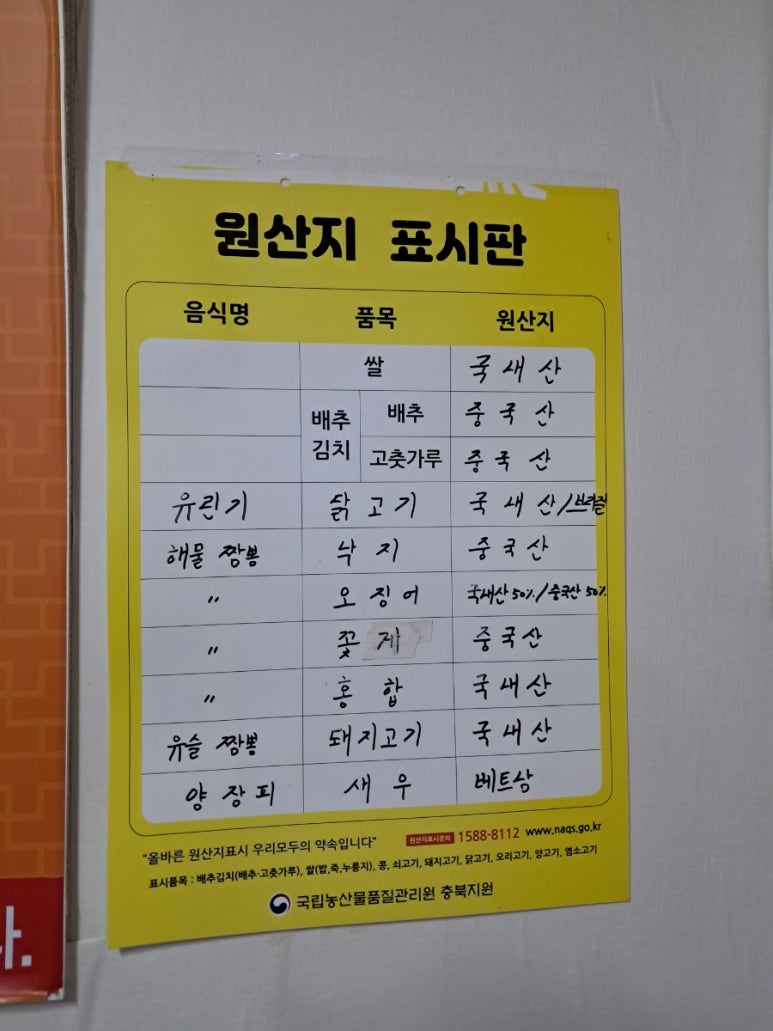 원산지 표시판
음식명 품목 원산지
쌀 국내산
배추김치 배추 중국산
고춧가루 중국산
유린기 닭고기 국내산/브라질
해물 짬뽕 낙지 중국산
" 오징어 국내산 50%/중국산 50%
" 꽃게 중국산
" 홍합 국내산
유슬 짬뽕 돼지고기 국내산
양장피 새우 베트남
"올바른 원산지표시 우리모두의 약속입니다" 원산지표시문의 1588-8112 www.naqs.go.kr
표시품목 : 배추김치(배추·고춧가루), 쌀(밥,죽,누룽지), 콩, 쇠고기, 돼지고기, 닭고기, 오리고기, 양고기, 염소고기
국립농산물품질관리원 충북지원